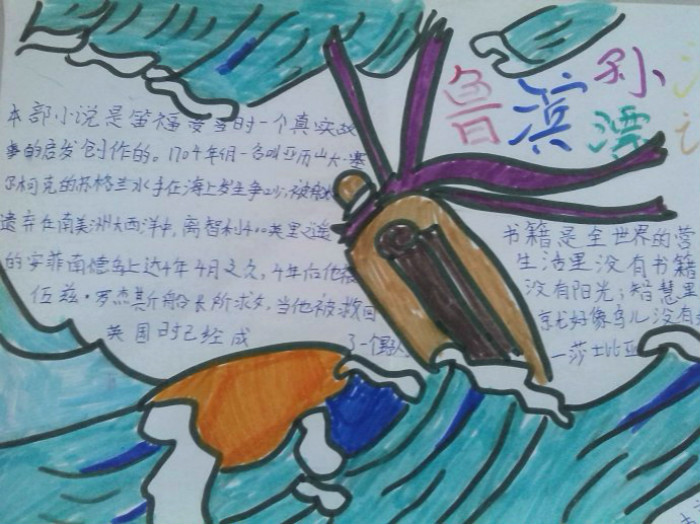 鲁滨孙
漂
本部小说是笛福受当时一个真实故
事的启发创作的。1704年4月一名叫亚历山大·塞
尔柯克的苏格兰水手在海上与发生争
遗弃在南美洲大西洋中,离智利400英里之遥
的安菲南德岛上达4年4月之久,4年后他被
伍兹·罗杰斯船长所求,当他被救回
英国时已经成 了一个野人
书籍是全世界的营
生活里没有书籍
没有阳光;智慧里
就好像鸟儿没有
—莎士比亚